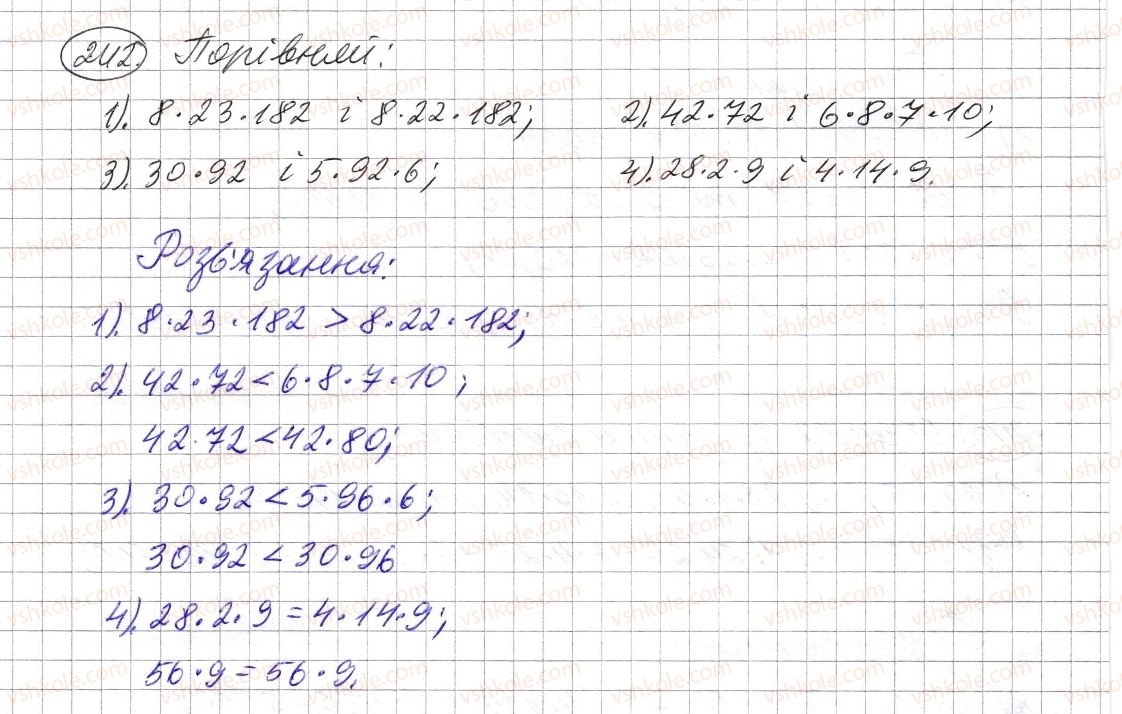 242. Порівняй:
1). 8·23·182 і 8·22·182; 2). 42·72 і 6·8·7·10;
3). 30·92 і 5·92·6; 4). 28·2·9 і 4·14·9.
Розв'язання:
1). 8·23·182 > 8·22·182;
2). 42·72 < 6·8·7·10;
42·72 < 42·80;
3). 30·92 < 5·96·6;
30·92 < 30·96
4). 28·2·9 = 4·14·9;
56·9 = 56·9.